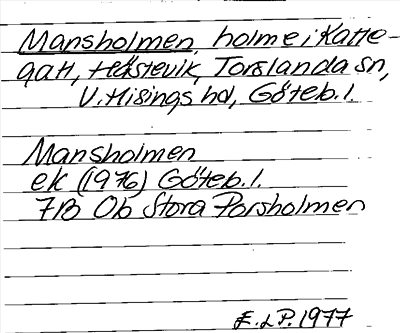 Mansholmen, holme i Katte-
gatt, Hästevik, Torslanda sn,
V. Hisings hd, Göteb. l.
Mansholmen
ek (1976) Göteb. l.
7B Ob Stora Porsholmen
E. L P. 1977